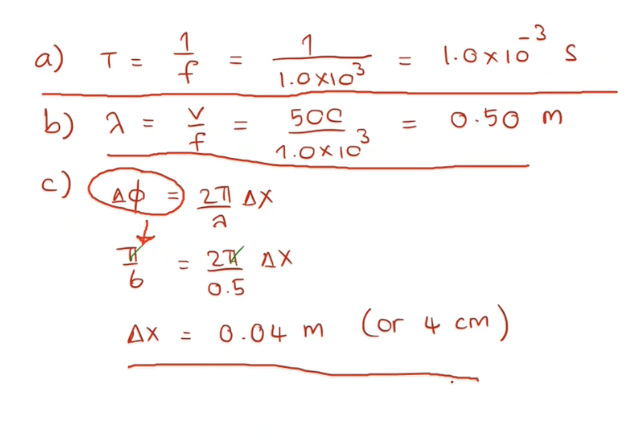 a) T = 1/f = 1/1.0×10³ = 1.0×10⁻³ s
b) λ = v/f = 500/1.0×10³ = 0.50 m
c) Δϕ = 2π/λ Δx
π/6 = 2π/0.5 Δx
Δx = 0.04 m (or 4 cm)